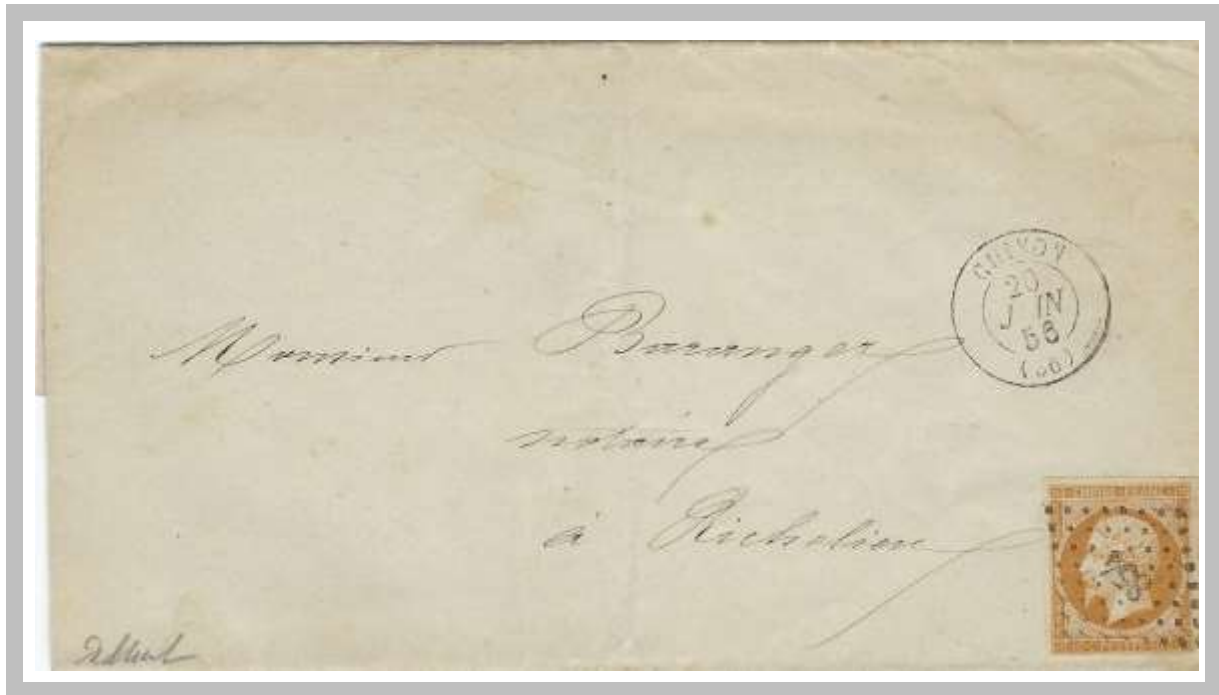 CHINON
20
JUIN
56
(36)
Monsieur Baranger
notaire
à Richelieu